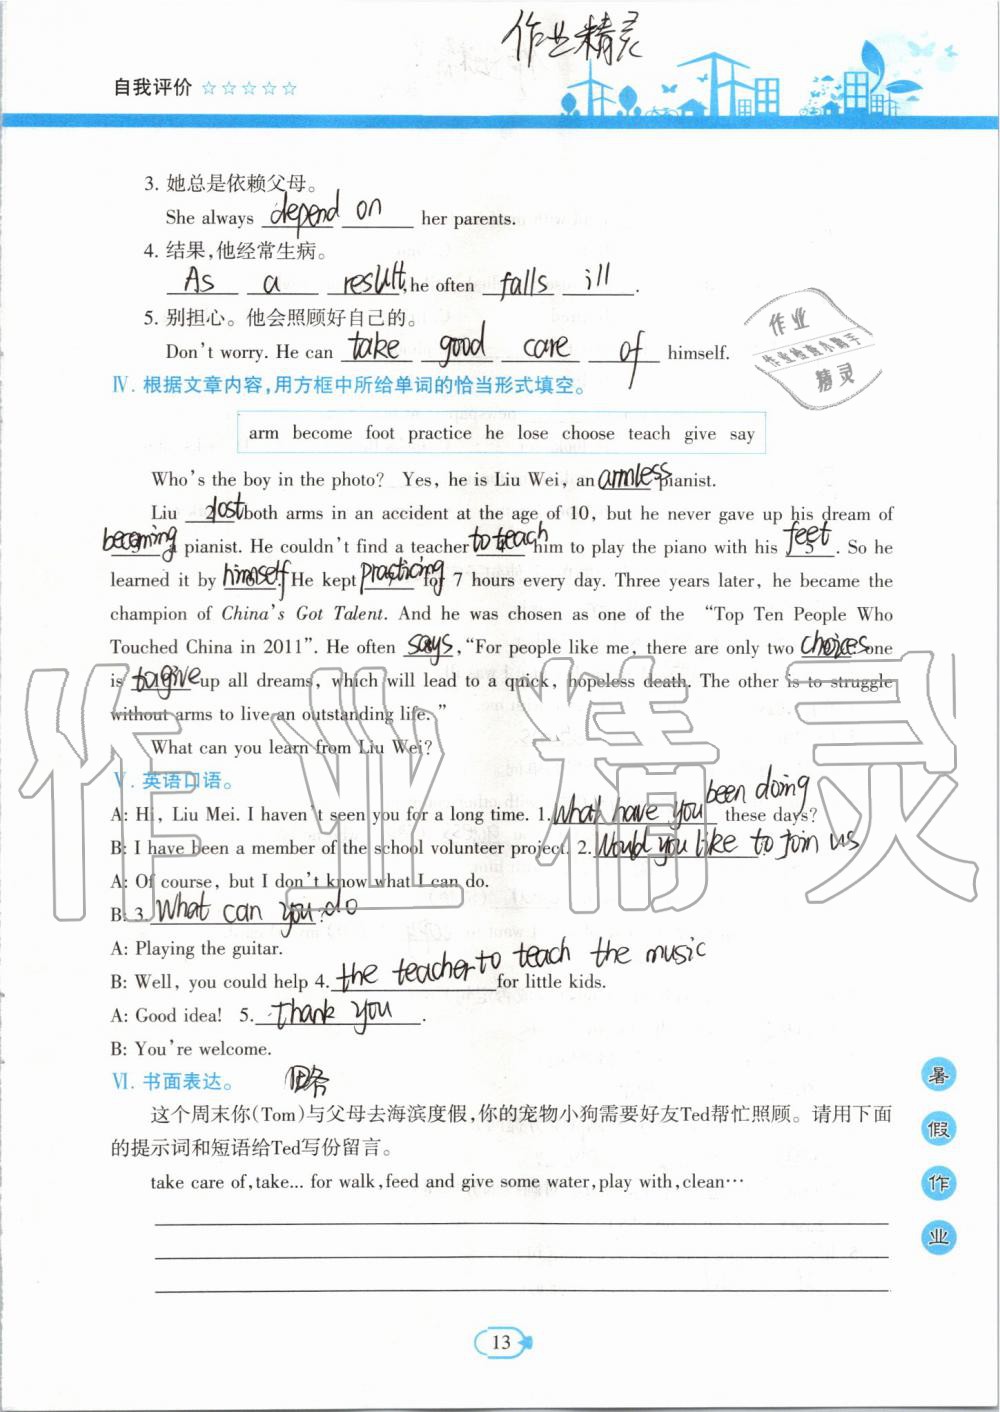 作业精灵
自我评价 ☆☆☆☆☆
3. 她总是依赖父母。
She always depend on her parents.
4. 结果,他经常生病。
As a result,he often falls ill.
5. 别担心。他会照顾好自己的。
Don't worry. He can take good care of himself.
作业
作业检查小助手
精灵
Ⅳ. 根据文章内容,用方框中所给单词的恰当形式填空。
arm become foot practice he lose choose teach give say
Who's the boy in the photo? Yes, he is Liu Wei, an armless pianist.
Liu 2 lost both arms in an accident at the age of 10, but he never gave up his dream of
becoming a pianist. He couldn't find a teacher to teach him to play the piano with his feet. So he
learned it by himself. He kept practicing for 7 hours every day. Three years later, he became the
champion of China's Got Talent. And he was chosen as one of the “Top Ten People Who
Touched China in 2011”. He often says,“For people like me, there are only two choices one
is to give up all dreams, which will lead to a quick, hopeless death. The other is to struggle
without arms to live an outstanding life. ”
What can you learn from Liu Wei?
Ⅴ. 英语口语。
A: Hi, Liu Mei. I haven't seen you for a long time. 1. What have you been doing these days?
B: I have been a member of the school volunteer project. 2. Would you like to join us
A: Of course, but I don't know what I can do.
B: 3. What can you do
A: Playing the guitar.
B: Well, you could help 4. the teacher to teach the music for little kids.
A: Good idea! 5. thank you.
B: You're welcome.
Ⅵ. 书面表达。 略
这个周末你(Tom)与父母去海滨度假,你的宠物小狗需要好友Ted帮忙照顾。请用下面
的提示词和短语给Ted写份留言。
take care of,take... for walk,feed and give some water,play with,clean…
暑
假
作
业
13
作业精灵